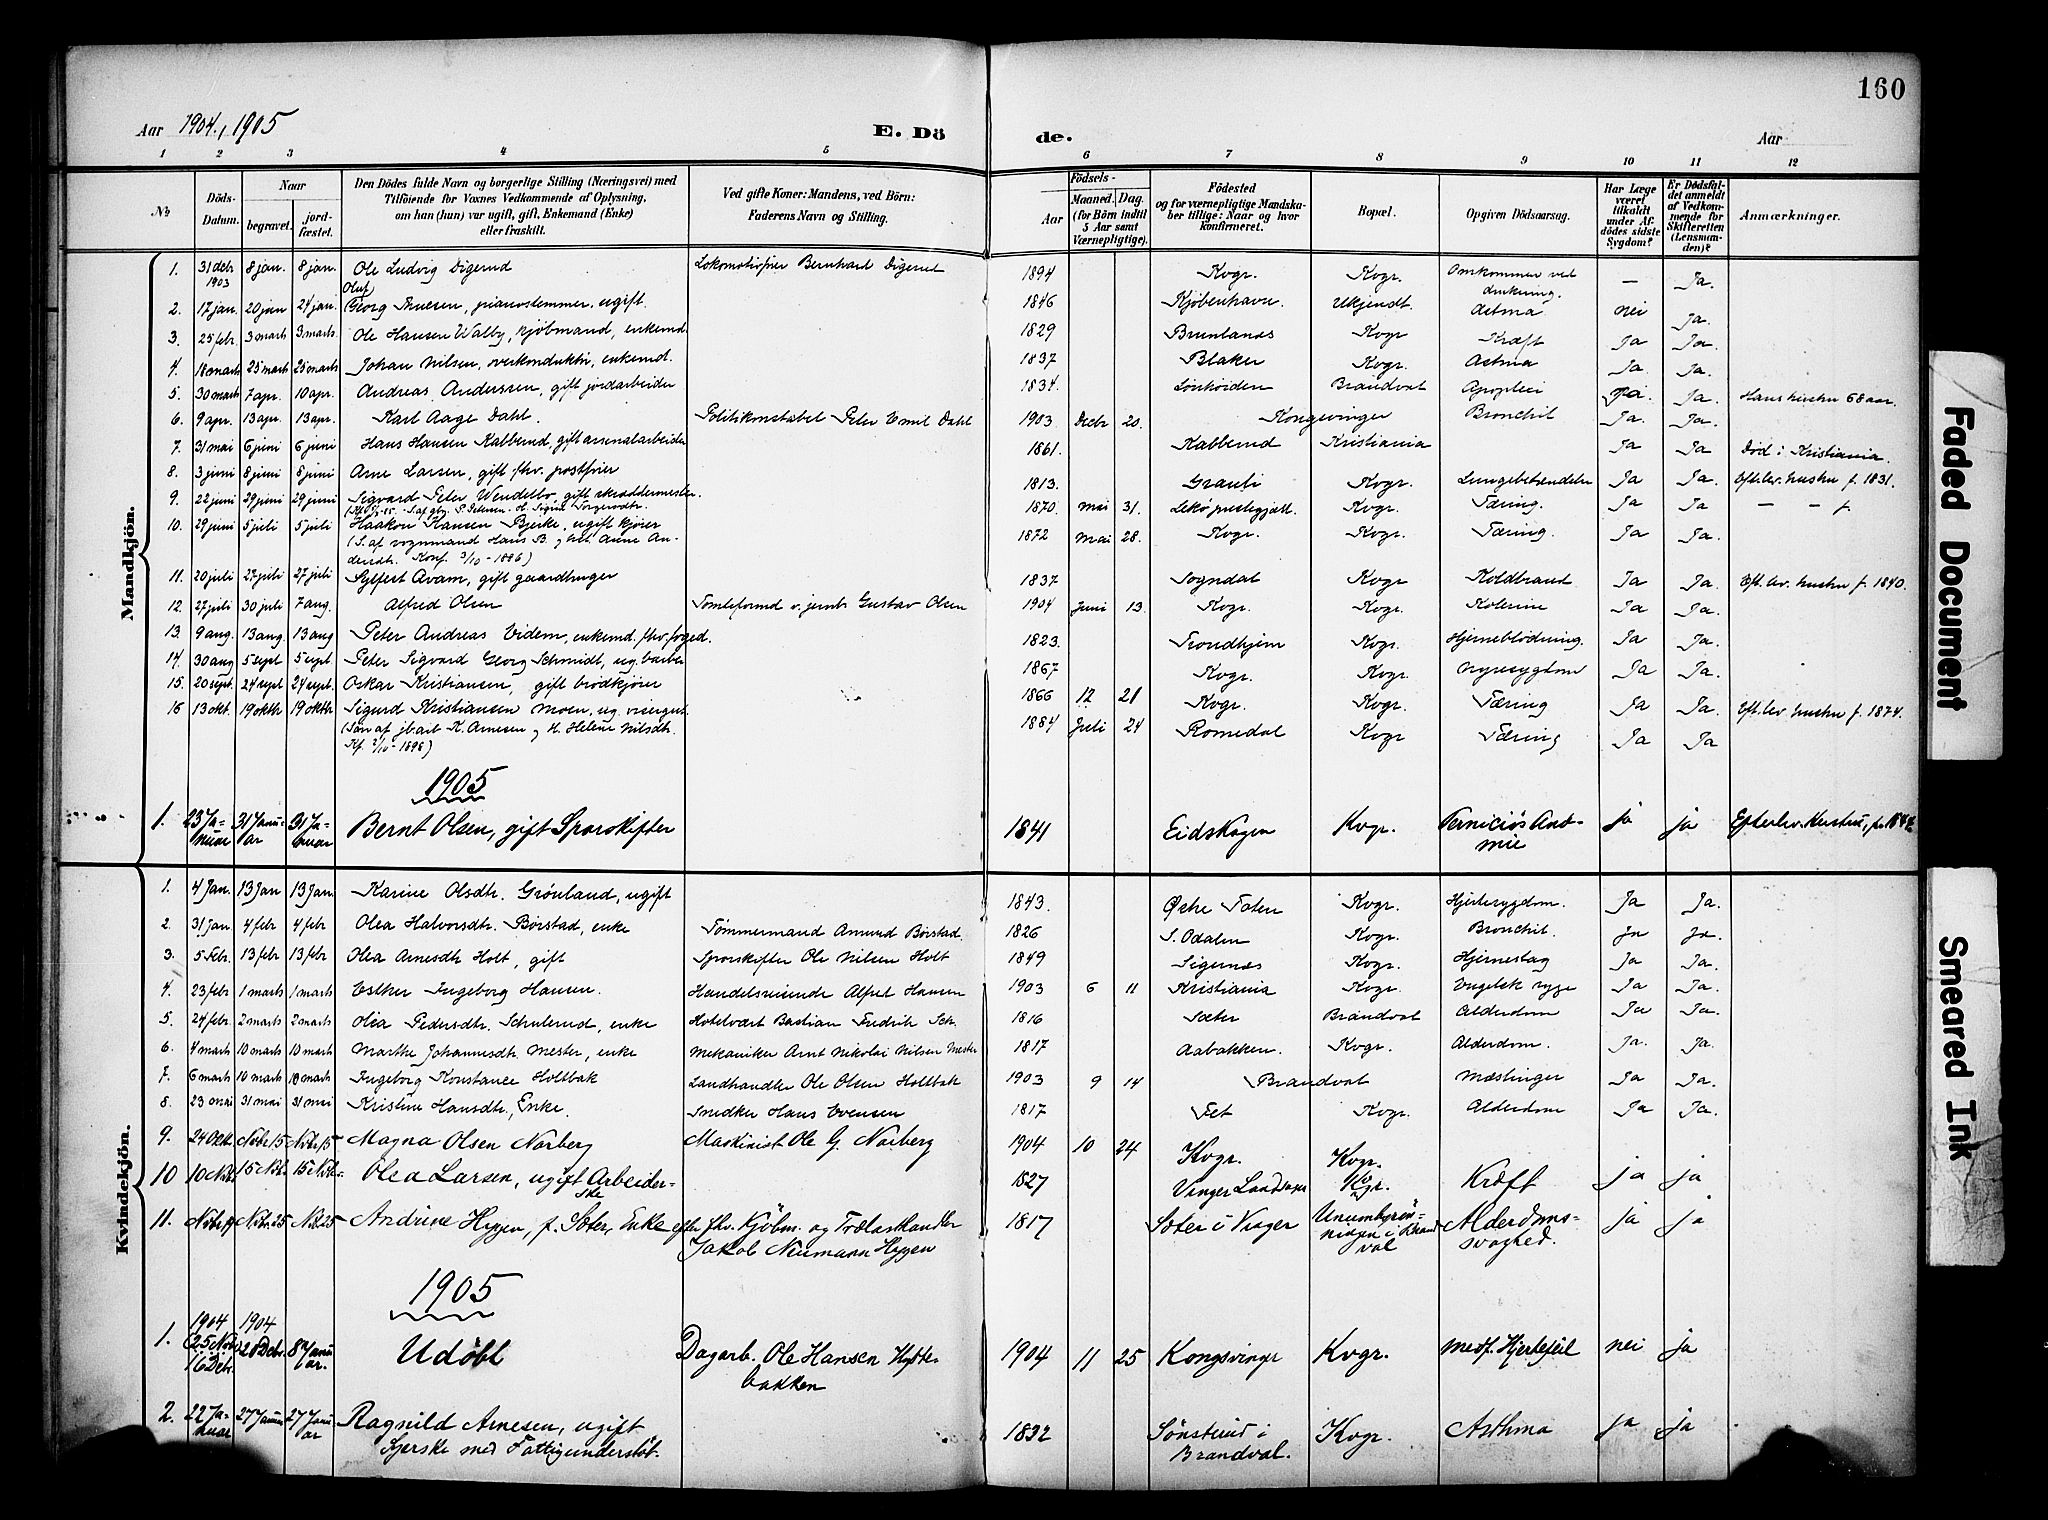 160
Aar 1904, 1905 E. Dö de. Aar
1 2 3 4 5 6 7 8 9 10 11 12
№ Döds-Datum. Naar begravet. jordfæstet. Den Dödes fulde Navn og borgerlige Stilling (Næringsvei) med Tilföiende for Voxnes Vedkommende af Oplysning, om han (hun) var ugift, gift, Enkemand (Enke) eller fraskilt. Ved gifte Koner: Mandens, ved Börn: Faderens Navn og Stilling. Födsels- Aar Maaned. Dag. (for Börn indtil 5 Aar samt Værnepligtige). Födested og for værnepligtige Mandskaber tillige: Naar og hvor konfirmeret. Bopæl. Opgiven Dödsaarsag. Har Læge været tilkaldt under Afdödes sidste Sygdom? Er Dödsfaldet anmeldt af Vedkommende for Skifteretten (Lensmanden)? Anmærkninger.
Mandkjön.
1. 31 debr 1903 8 jan. 8 jan. Ole Ludvig Digerud Lokomotivfyrer Bernhard Digerud 1894 Kvgr. Kvgr. Omkommen ved drukning. — Ja.
Oluf
2. 17 jan. 20 jan 24 jan. Georg Thuesen, pianostemmer, ugift. 1846 Kjøbenhavn. Ukjendt. Astma nei Ja.
3. 25 febr. 3 marts 3 marts. Ole Hansen Walby, kjøbmand, enkemd. 1829 Brunlanes Kvgr Kræft Ja Ja.
4. 18 marts 25 marts 25 marts Johan Nilsen, overkonduktør, enkemd. 1837 Blaker Kvgr. Astma Ja Ja.
5. 30 marts 7 apr. 10 apr. Andreas Anderssen, gift jordarbeider 1834. Brandval Apoplexi Ja. Ja. Hans hustru 68 aar.
6. 9 apr. 13 apr. 13 apr. Karl Aage Dahl. Politikonstabel Peter Emil Dahl 1903 Decbr 20. Kongsvinger Bronchit Ja. Ja.
7. 31 mai 6 juni 6 juni Hans Hansen Kabberud, gift arsenalarbeider 1861. Kabberud Kristiania Ja Ja Død i Kristiania.
8. 3 juni 8 juni 8 juni Arne Larsen, gift fhv. postfører 1813. Grauli Kvgr. Lungebetændelse Ja Ja. Eft.lev. hustru f. 1831.
9. 22 juni 29 juni 29 juni Sigvard Peter Wendelbo, gift skræddermester. 1870. mai 31. Lekø præstegjæld. Kvgr. Tæring. Ja Ja. — — f.
10. 29 juni 5 juli 5 juli Haakon Hansen Bjerke, ugift kjører 1872 mai 28. Kvgr. Kvgr. Tæring. Ja Ja.
(S. af vognmand Hans B. og hst. Anne Andersdt. Konf. 3/10-1886)
11. 20 juli 27 juli 27 juli Sylfest Avam, gift gaardbruger 1837 Sogndal Kvgr Koldbrand Ja Ja. Eft. lev. hustru f. 1840.
12. 27 juli 30 juli 7 aug. Alfred Olsen Tomteformd v. jernb. Gustav Olsen 1904 Juni 13. Kvgr. Kvgr. Kolerine Ja Ja.
13. 9 aug. 13 aug. 13 aug Peter Andreas Videm, enkemd. fhv. foged. 1823. Trondhjem Kvgr. Hjerneblødning. Ja Ja.
14. 30 aug 5 sept 5 sept. Peter Sigvard Georg Schmidt, ug. barber 1867 Kvgr. Kvgr. Nyresygdom Ja Ja.
15. 20 sept. 24 sept 24 sept. Oskar Kristiansen, gift brødkjører 1866 12 21 Kvgr. Kvgr. Tæring Ja Ja. Eft.lev hustru f. 1874.
16 13 okt. 19 oktbr 19 oktbr Sigurd Kristiansen Moen, ug. visergut. 1884 Juli 24 Romedal Kvgr Tæring Ja Ja
(Søn af jb.arb K. Arnesen og H. Helene Nilsdt. Kf. 2/10-1898)
1905
1. 23 Januar 31 Januar 31 Januar Bernt Olsen, gift Sporskifter 1841 Eidskogen Kvgr. Perniciøs Anæmie ja ja Efterlev. Hustru, f. 1842
Kvindekjön.
1. 4 Jan. 13 Jan 13 Jan. Karine Olsdtr. Grønland, ugift 1843. Østre Toten Kvgr. Hjertesygdom. Ja Ja.
2. 31 Jan 4 febr 4 febr Olea Halvorsdtr. Børstad, enke Tømmermand Amund Børstad. 1826 S. Odalen Kvgr. Bronchit. ja ja.
3. 5 Febr. 13 febr 13 febr Olea Arnesdtr Holt, gift Sporskifter Ole Nilsen Holt 1849 Sigernæs Kvgr. Hjerneslag Ja Ja.
4. 23 febr 1 marts 1 marts Esther Ingeborg Hansen. Handelsreisende Alfred Hansen 1903 6 11 Kristiania Kvgr. Engelsk syge Ja Ja.
5. 24 febr. 2 marts 2 marts Olea Pedersdtr. Schulerud, enke Hotelvært Bastian Fredrik Sch. 1816 Sæter Brandval Alderdom Ja Ja.
6. 4 marts 10 marts 10 marts Marthe Johannesdtr. Mester, enke Mekaniker Arnt Nikolai Nilsen Mester 1817 Aabakken. Kvgr. Alderdom. Ja. Ja.
7. 6 marts 10 marts 10 marts Ingeborg Konstance Holtbak Landhandler Ole Olsen Holtbak 1903 9 14 Brandval Mæslinger Ja Ja.
8. 23 mai 31 mai 31 mai Kristine Hansdtr., Enke. Snedker Hans Evensen 1817 Fet Kvgr. Alderdom Ja Ja.
9. 24 Okt. Novbr 15 Novbr 15 Magna Olsen Norberg Maskinist Ole G. Norberg 1904 10 24 Kvgr. Kvgr.
10 10 Novbr. 15 Novbr. 15 Novbr. Olea Larsen, ugift Arbeiderske 1827 Vinger Landsogn Kvgr. Kræft ja ja
11. Novbr 25 Novbr 25 Andrine Hygen, f. Sæter, Enke efter fhv. Kjøbm. og Trælasthandler Jakob Neumann Hygen 1817 Sæter i Vinger i Brandval Alderdomssvaghed. ja ja
1905
1. 1904 (25 Novbr.) 16 Debr. 1904 20 Debr. 8 Januar. Udöbt Dagarb. Ole Hansen Hyttebakken 1904 11 25 Kongsvinger Kvgr. Medf. Hjertefeil nei ja
2. 22 Januar 27 Januar 27 Januar Ragnild Arnesen, ugift Syerske med Fattigunderstöt. 1832 Sönsterud i Brandval. Kvgr. Asthma ja ja
Faded Document
Smeared Ink